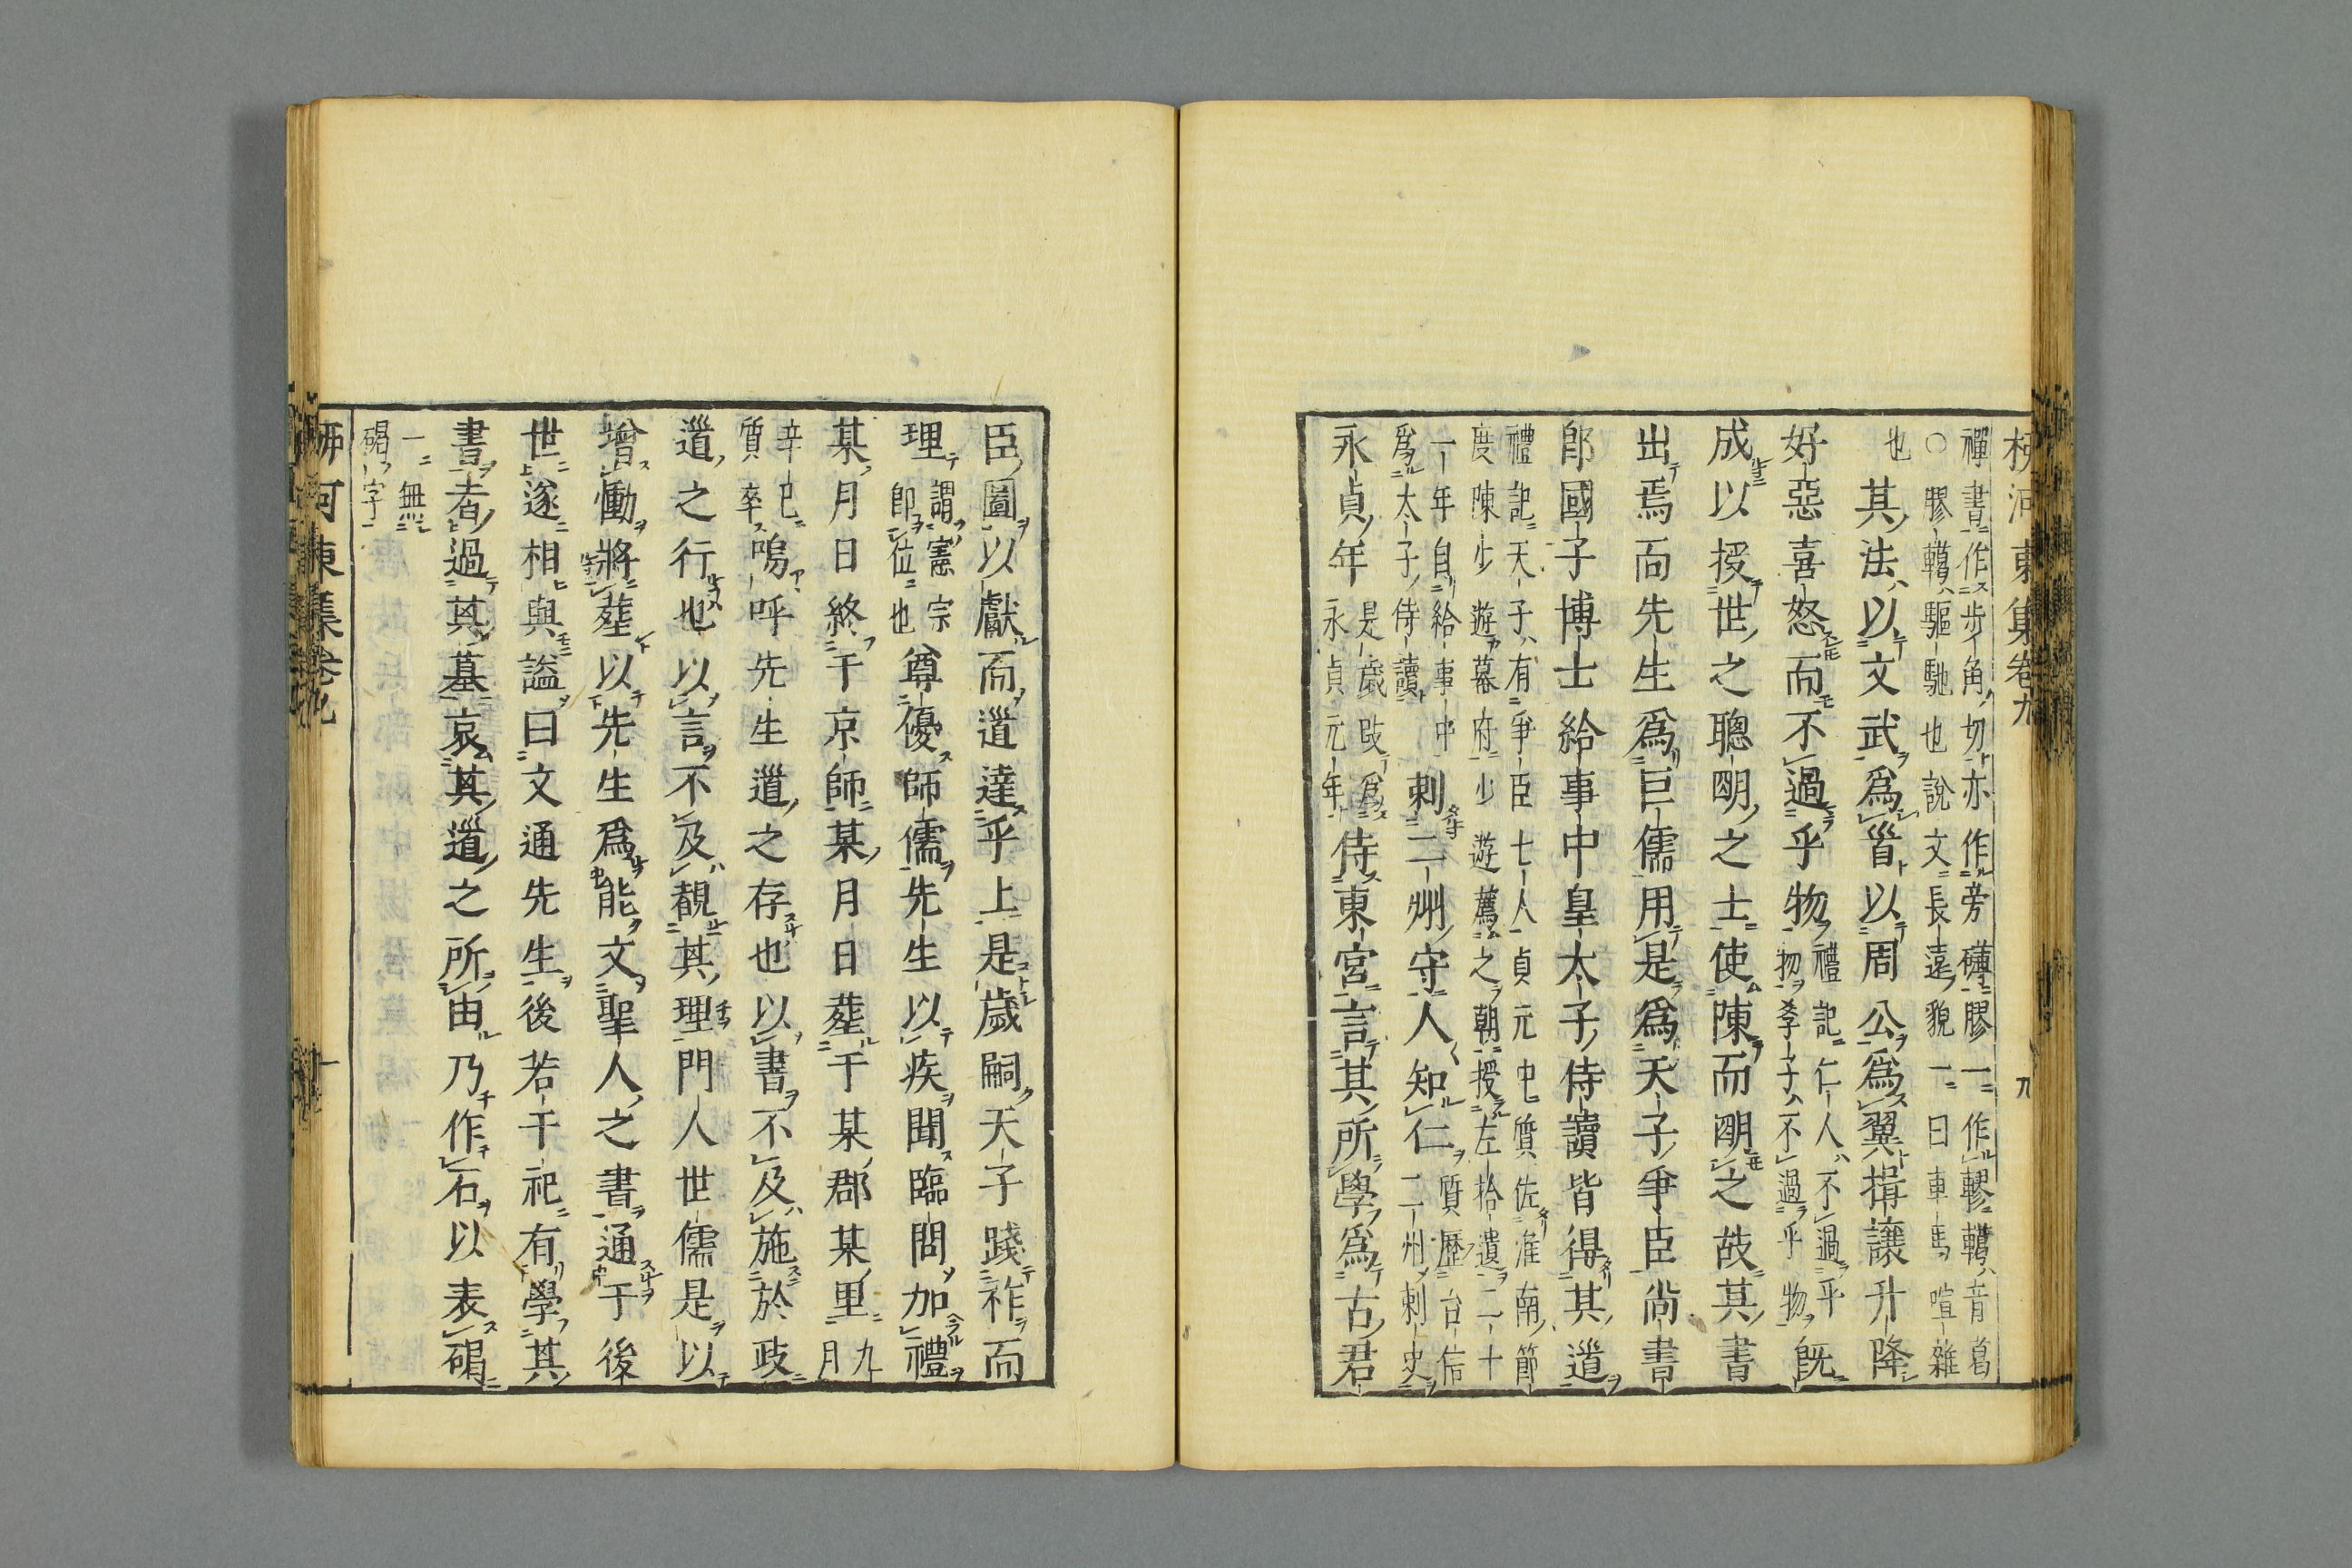 柳河東集卷九
九
禪書作步角切亦作旁礴膠一作轇轕音葛
○膠轕驅馳也說文長遠貌一曰車馬喧雜
也
其法以文武為首以周公為翼揖讓升降
好惡喜怒而不過乎物
禮記仁人不過乎
物孝子不過乎物
旣
成以授世之聰明之士使陳而明之故其書
出焉而先生爲巨儒用是爲天子爭臣尙書
郎國子博士給事中皇太子侍讀皆得其道
禮記天子有爭臣七人貞元中質佐淮南節
度陳少遊幕府少遊薦之朝授左拾遺二十
一年自給事中
爲太子侍讀
刺二州守人知仁
質歷台信
二州刺史
永貞年
是歲改爲
永貞元年
侍東宮言其所學爲古君
臣圖以獻而道達乎上是歲嗣天子踐祚而
理
謂憲宗
卽位也
尊優師儒先生以疾聞臨問加禮
某月日終于京師某月日葬于某郡某里
九
月
辛巳
質卒
嗚呼先生道之存也以書不及施於政
道之行也以言不及覩其理門人世儒是以
增慟將葬以先生爲能文聖人之書通于後
世遂相與謚曰文通先生後若干祀有學其
書者過其墓哀其道之所由乃作石以表碣
一無
碣字
柳河東集卷九
十